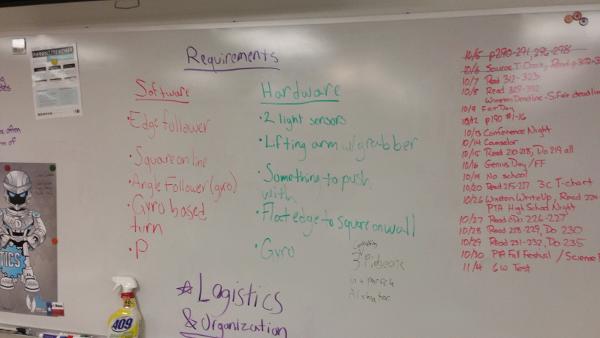 Requirements
Software
Edge follower
Square on line
Angle Follower (gyro)
Gyro based
turn
P
Hardware
2 light sensors
Lifting arm w/grabber
Something to push
with
Float edge to square on wall
Gyro
Logistics
& Organization
409
TICS
in a
10/5 p290-291, 296-298
10/6 Source T-Chart, Read
10/7 Read 312-323
10/8 Read
10/9 Fair Day
p190 #1-16
10/13 Conference Night
10/14 Counselor
Read 210-218, Do 219 all
10/16 Genius Day/FF
No school
10/20 Read 215-217 3c T-chart
10/26 Read
PTA High School Night
10/27 Do 226-227
10/28 Read 228-229, Do 230
10/29 Read 231-232, Do 235
10/30 PTA Fall Festival / Science
11/4 6w Test